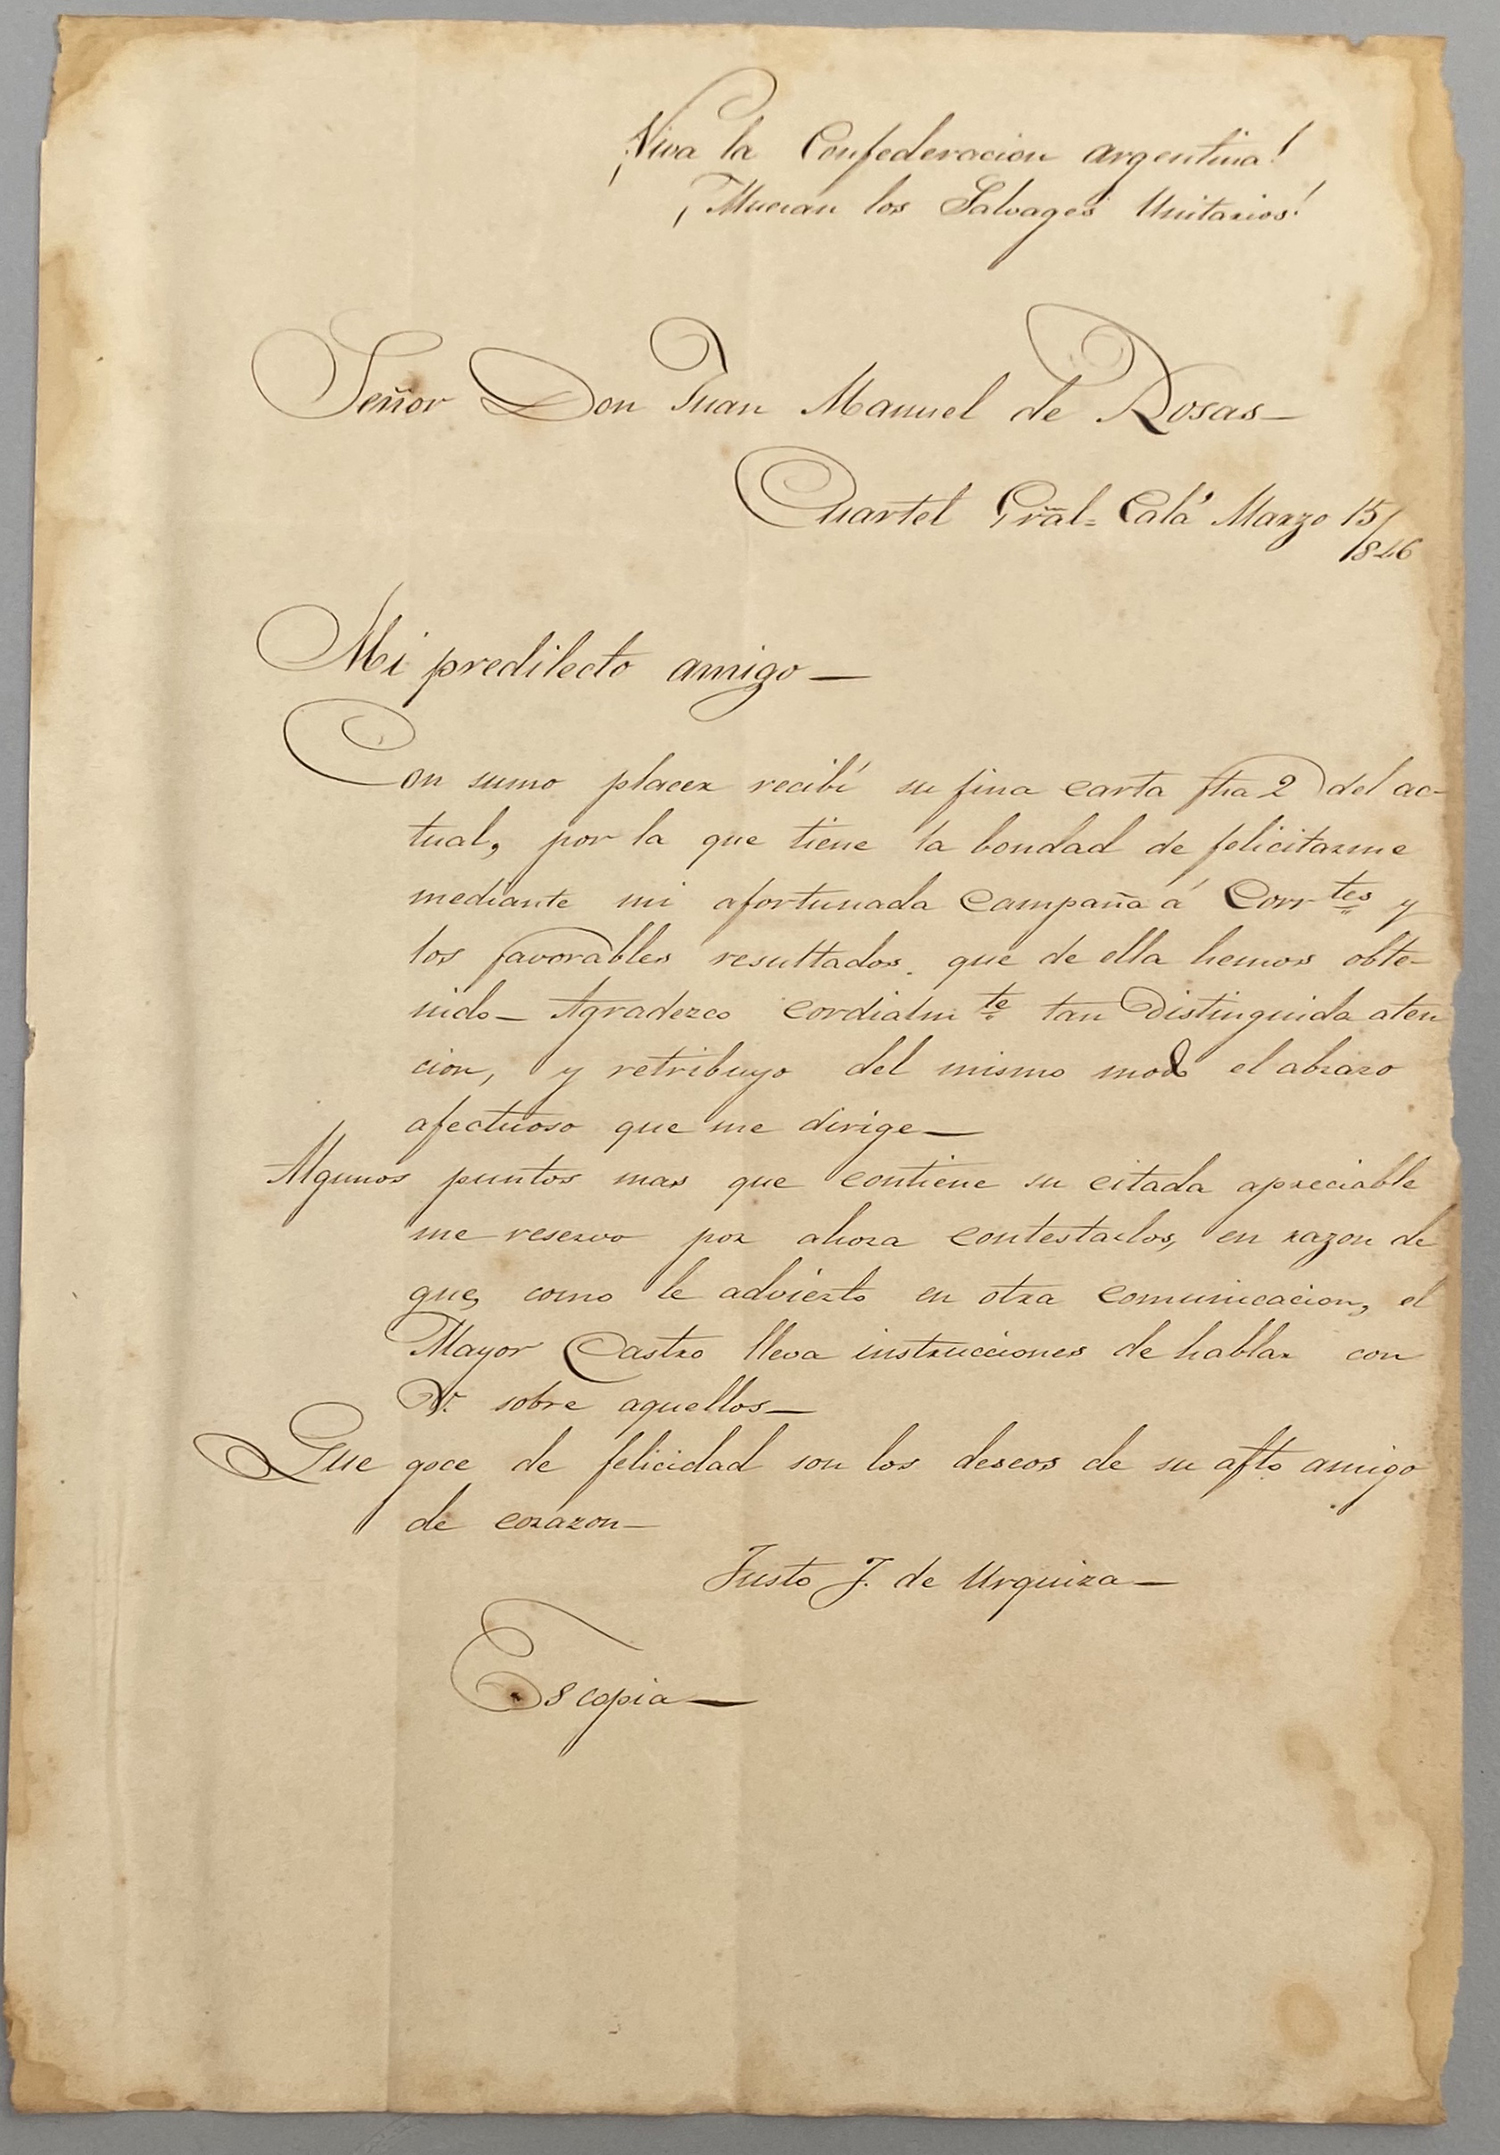 ¡Viva la Confederacion Argentina!
¡Mueran los Salvages Unitarios!
Señor Don Juan Manuel de Rosas—
Cuartel Grãl= Calá Marzo 15/
1846
Mi predilecto amigo—
Con sumo placer recibí su fina carta fha 2 del ac-
tual, por la que tiene la bondad de felicitarme
mediante mi afortunada campaña á Corrtes y
los favorables resultados. que de ella hemos obte-
nido— Agradezco cordialmte tan distinguida aten
cion, y retribuyo del mismo modo el abrazo
afectuoso que me dirige—
Algunos puntos mas que contiene su citada apreciable
me reservo por ahora contestarlos, en razon de
que, como le advierto en otra comunicacion, el
Mayor Castro lleva instrucciones de hablar con
V. sobre aquellos—
Que goce de felicidad son los deseos de su afto amigo
de corazon—
Justo J. de Urquiza—
Es copia—